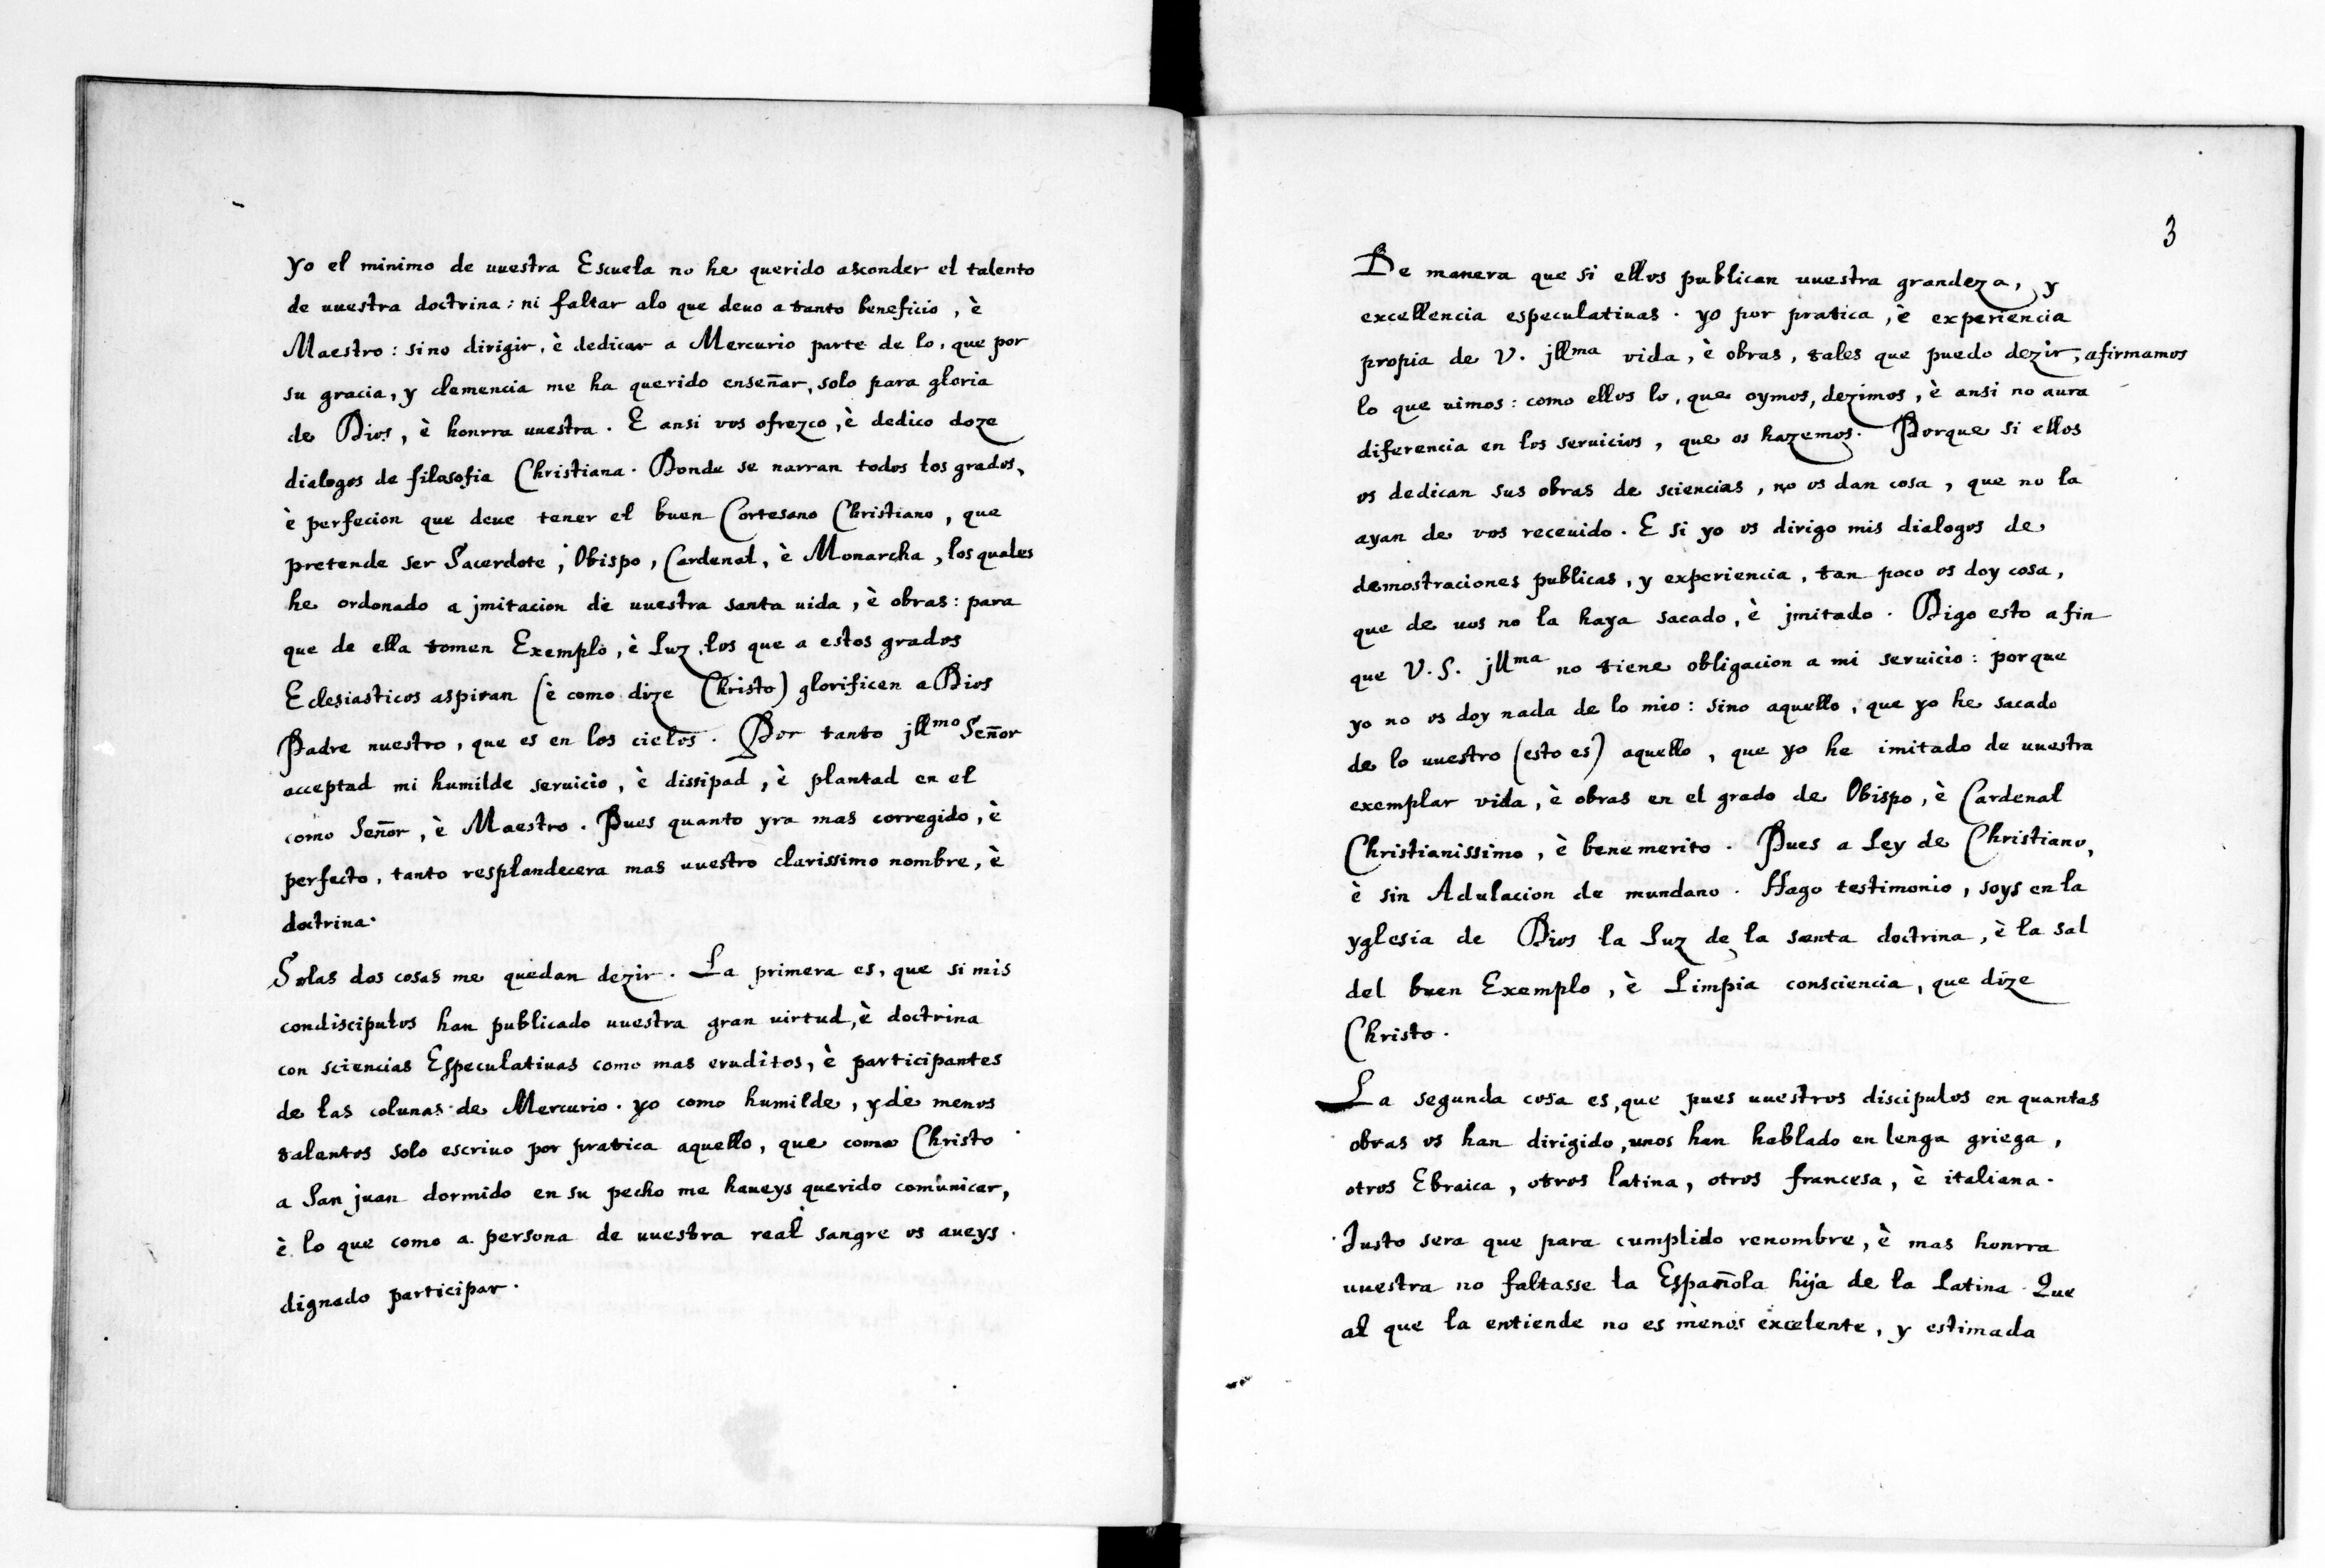 Yo el minimo de uuestra Escuela no he querido asconder el talento
de uuestra doctrina: ni faltar alo que deuo a tanto beneficio, è
Maestro: sino dirigir, è dedicar a Mercurio parte de lo, que por
su gracia, y clemencia me ha querido enseñar, solo para gloria
de Dios, è honrra uuestra. E ansi vos ofrezco, è dedico doze
dialogos de filosofia Christiana. Donde se narran todos los grados,
è perfecion que deue tener el buen Cortesano Christiano, que
pretende ser Sacerdote, Obispo, Cardenal, è Monarcha, los quales
he ordonado a jmitacion de uuestra santa uida, è obras: para
que de ella tomen Exemplo, è Luz, los que a estos grados
Eclesiasticos aspiran (è como dize Christo) glorificen a Dios
Padre nuestro, que es en los cielos. Por tanto jllmo Señor
acceptad mi humilde seruicio, è dissipad, è plantad en el
como Señor, è Maestro. Pues quanto yra mas corregido, è
perfecto, tanto resplandecera mas uuestro clarissimo nombre, è
doctrina.
Solas dos cosas me quedan dezir. La primera es, que si mis
condiscipulos han publicado uuestra gran uirtud, è doctrina
con sciencias Especulatiuas como mas eruditos, è participantes
de las colunas de Mercurio. yo como humilde, y de menos
talentos solo escriuo por pratica aquello, que como Christo
a San juan dormido en su pecho me haueys querido comunicar,
è lo que como a persona de uuestra real sangre os aueys
dignado participar.
3
De manera que si ellos publican uuestra grandeza, y
excellencia especulatiuas. yo por pratica, è experiencia
propia de V. jllma vida, è obras, tales que puedo dezir, afirmamos
lo que uimos: como ellos lo, que oymos, dezimos, è ansi no aura
diferencia en los seruicios, que os hazemos. Porque si ellos
os dedican sus obras de sciencias, no os dan cosa, que no la
ayan de vos receuido. E si yo os dirigo mis dialogos de
demostraciones publicas, y experiencia, tan poco os doy cosa,
que de uos no la haya sacado, è jmitado. Digo esto a fin
que V. S. jllma no tiene obligacion a mi seruicio: porque
yo no os doy nada de lo mio: sino aquello, que yo he sacado
de lo uuestro (esto es) aquello, que yo he imitado de uuestra
exemplar vida, è obras en el grado de Obispo, è Cardenal
Christianissimo, è benemerito. Pues a Ley de Christiano,
è sin Adulacion de mundano. Hago testimonio, soys en la
yglesia de Dios la Luz de la santa doctrina, è la sal
del buen Exemplo, è Limpia consciencia, que dize
Christo.
La segunda cosa es, que pues uuestros discipulos en quantas
obras os han dirigido, unos han hablado en lenga griega,
otros Ebraica, otros latina, otros francesa, è italiana.
Iusto sera que para cumplido renombre, è mas honrra
uuestra no faltasse la Española hija de la Latina. Que
al que la entiende no es menos excelente, y estimada